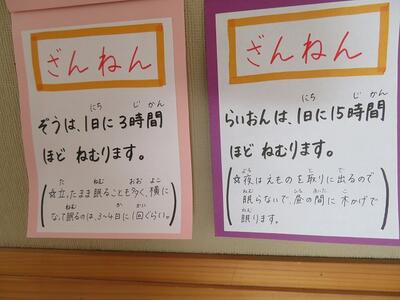 ざんねん
ぞうは、1日に3時間
ほど ねむります。
(☆立ったまま眠ることも多く、横に
なって眠るのは、3~4日に1回くらい。)
ざんねん
らいおんは、1日に15時間
ほど ねむります。
(☆夜はえものを取りに出るので
眠らないで、昼の間に木かげで
眠ります。)